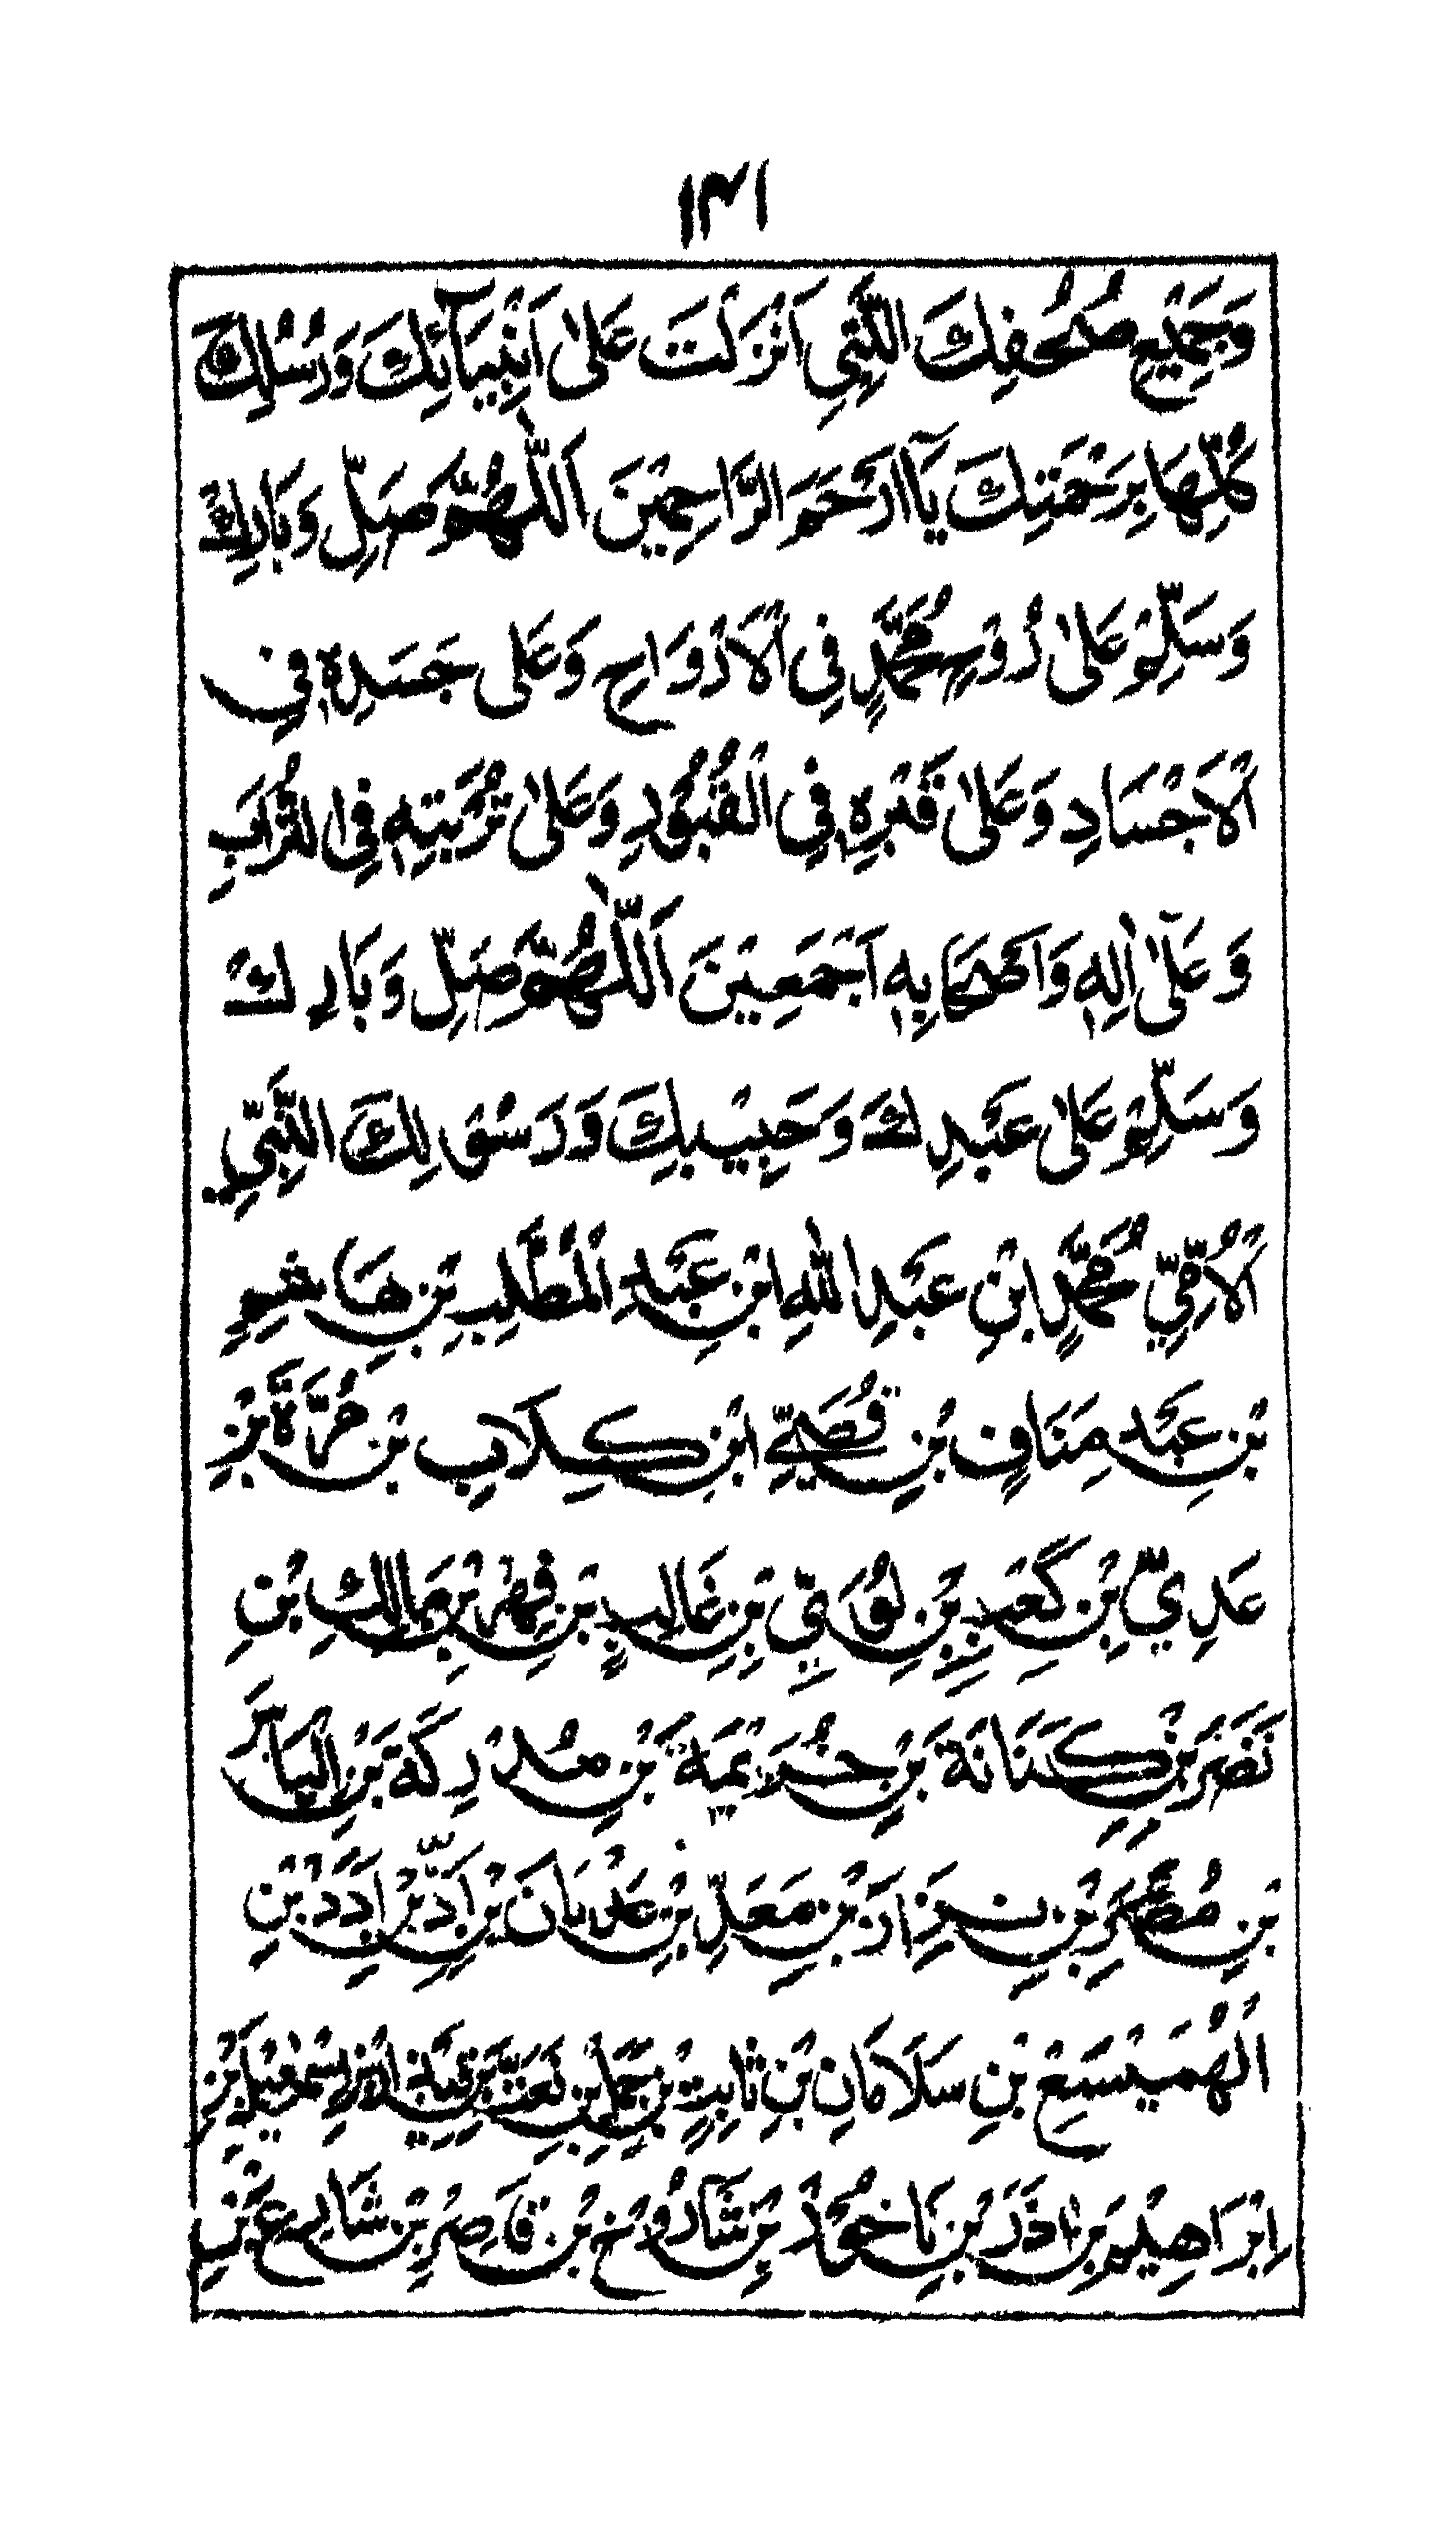 ١٣١
وَجَمِيْعِ صُحُفِكَ الَّتِيِ اَنْزَلْتَ عَلىٰ اَنْبِيَآئِكَ وَرُسُلِكَ
كُلِّهَا بِرَحْمَتِكَ يَآاَرْحَمَ الرَّاحِمِيْنَ اَللّٰهُمَّ صَلِّ وَبَارِكْ
وَسَلِّمْ عَلىٰ رُوْحِ مُحَمَّدٍ فِى الْاَرْوَاحِ وَعَلى جَسَدِهٖ فِى
الْاَجْسَادِ وَعَلىٰ قَبْرِهٖ فِى الْقُبُوْرِ وَعَلىٰ تُرْبَتِهٖ فِى التُّرَابِ
وَعَلىٰٓ اٰلِهٖ وَاَصْحَابِهٖ اَجْمَعِيْنَ اَللّٰهُمَّ صَلِّ وَبَارِكْ
وَسَلِّمْ عَلىٰ عَبْدِكَ وَحَبِيْبِكَ وَرَسُوْلِكَ النَّبِيِّ
الْاُمِّيِّ مُحَمَّدٍ ابْنِ عَبْدِ اللهِ ابْنِ عَبْدِ الْمُطَّلِبِ بْنِ هَاشِمِ
بْنِ عَبْدِ مَنَافٍ بْنِ قُصَيِّ ابْنِ كِلَابِ بْنِ مُرَّةَ بْنِ
عَدِيِّ بْنِ كَعْبِ بْنِ لُوَيِّ بْنِ غَالِبٍ بْنِ فِهْرِ بْنِ مَالِكِ بْنِ
نَضْرِ بْنِ كِنَانَةَ بْنِ خُزَيْمَةَ بْنِ مُدْرِكَةَ بْنِ اِلْيَاسَ
بْنِ مُضَرَ بْنِ نِزَارِ بْنِ مَعَدِّ بْنِ عَدْنَانَ بْنِ اَدِّ بْنِ اَدَدَ بْنِ
الْهَمَيْسَعِ بْنِ سَلَامَانِ بْنِ ثَابِتِ بْنِ حَمَلِ بْنِ اِسْمٰعِيْلَ بْنِ
اِبْرَاهِيْمَ بْنِ اٰذَرَ بْنِ نَاخُوْرَ بْنِ شَارُوْخِ بْنِ